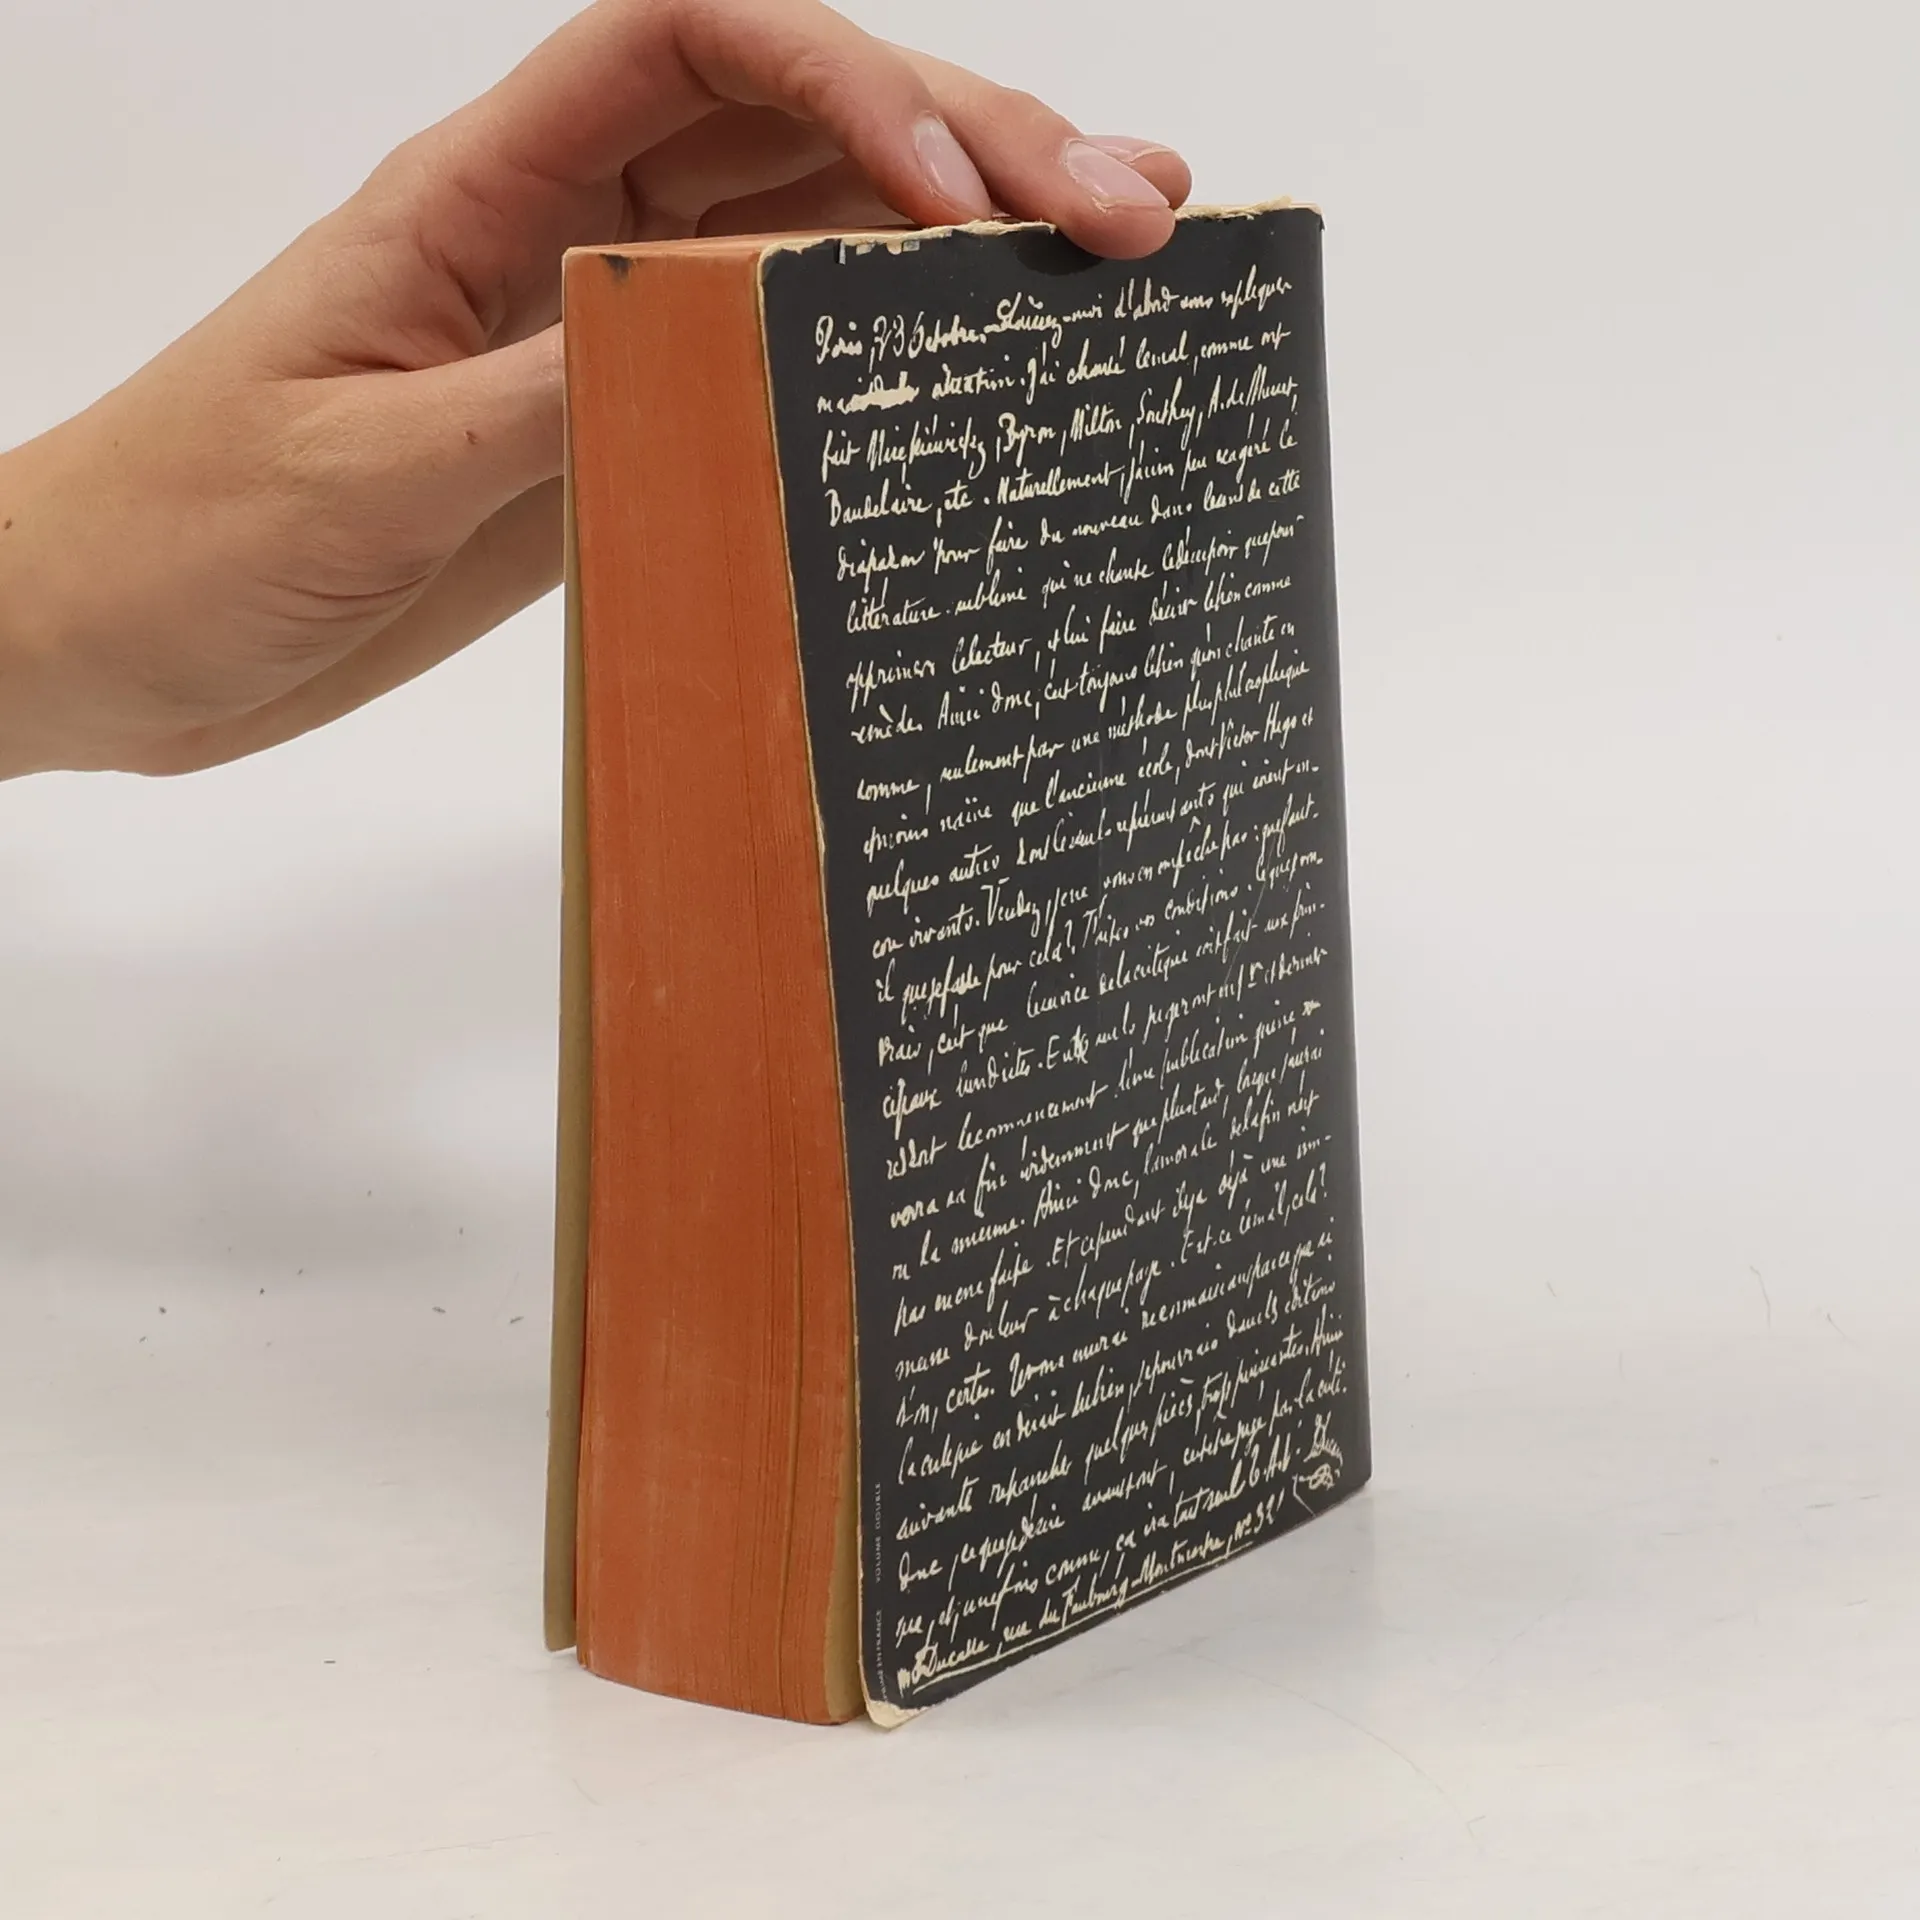 Paris, 23 Octobre. — Laissez-moi d'abord vous expliquer
ma situation. J'ai chanté le mal, comme ont
fait Mickiéwickz, Byron, Milton, Southey, A. de Musset,
Baudelaire, etc. Naturellement, j'ai un peu exagéré le
diapason pour faire du nouveau dans le sens de cette
littérature sublime qui ne chante le désespoir que pour
opprimer le lecteur, et lui faire désirer le bien comme
remède. Ainsi donc, c'est toujours le bien qu'on chante en
somme, seulement par une méthode plus philosophique
et moins naïve que l'ancienne école, dont Victor Hugo et
quelques autres sont les seuls représentants qui soient en-
core vivants. Vendez, je ne vous en empêche pas : que faut-
il que je fasse pour cela ? Faites vos conditions. Ce que je vou-
drais, c'est que le service de la critique soit fait aux prin-
cipaux lundistes. Eux seuls jugeront en 1er et dernier
ressort le commencement d'une publication qui ne
verra sa fin évidemment que plus tard, lorsque j'aurai
vu la mienne. Ainsi donc, la morale de la fin n'est
pas encore faite. Et cependant il y a déjà une im-
mense douleur à chaque page. Est-ce le mal, cela ?
Non, certes. Je vous en serai reconnaissant parce que si
la critique en disait du bien, je pourrais dans les éditions
suivantes retrancher quelques pièces, trop puissantes. Ainsi
donc, ce que je désire avant tout, c'est être jugé par la criti-
que, et, une fois connu, ça ira tout seul. T. A. V. I. Ducasse
M. I. Ducasse, rue du Faubourg-Montmartre, N° 32
IMPRIMÉ EN FRANCE VOLUME DOUBLE